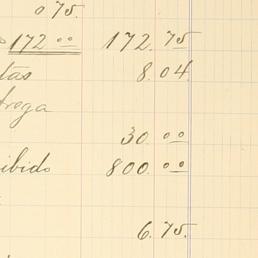 0 75.
172 00 172. 75
tas 8. 04.
trega
30. 00
ibido 800. 00
6. 75.